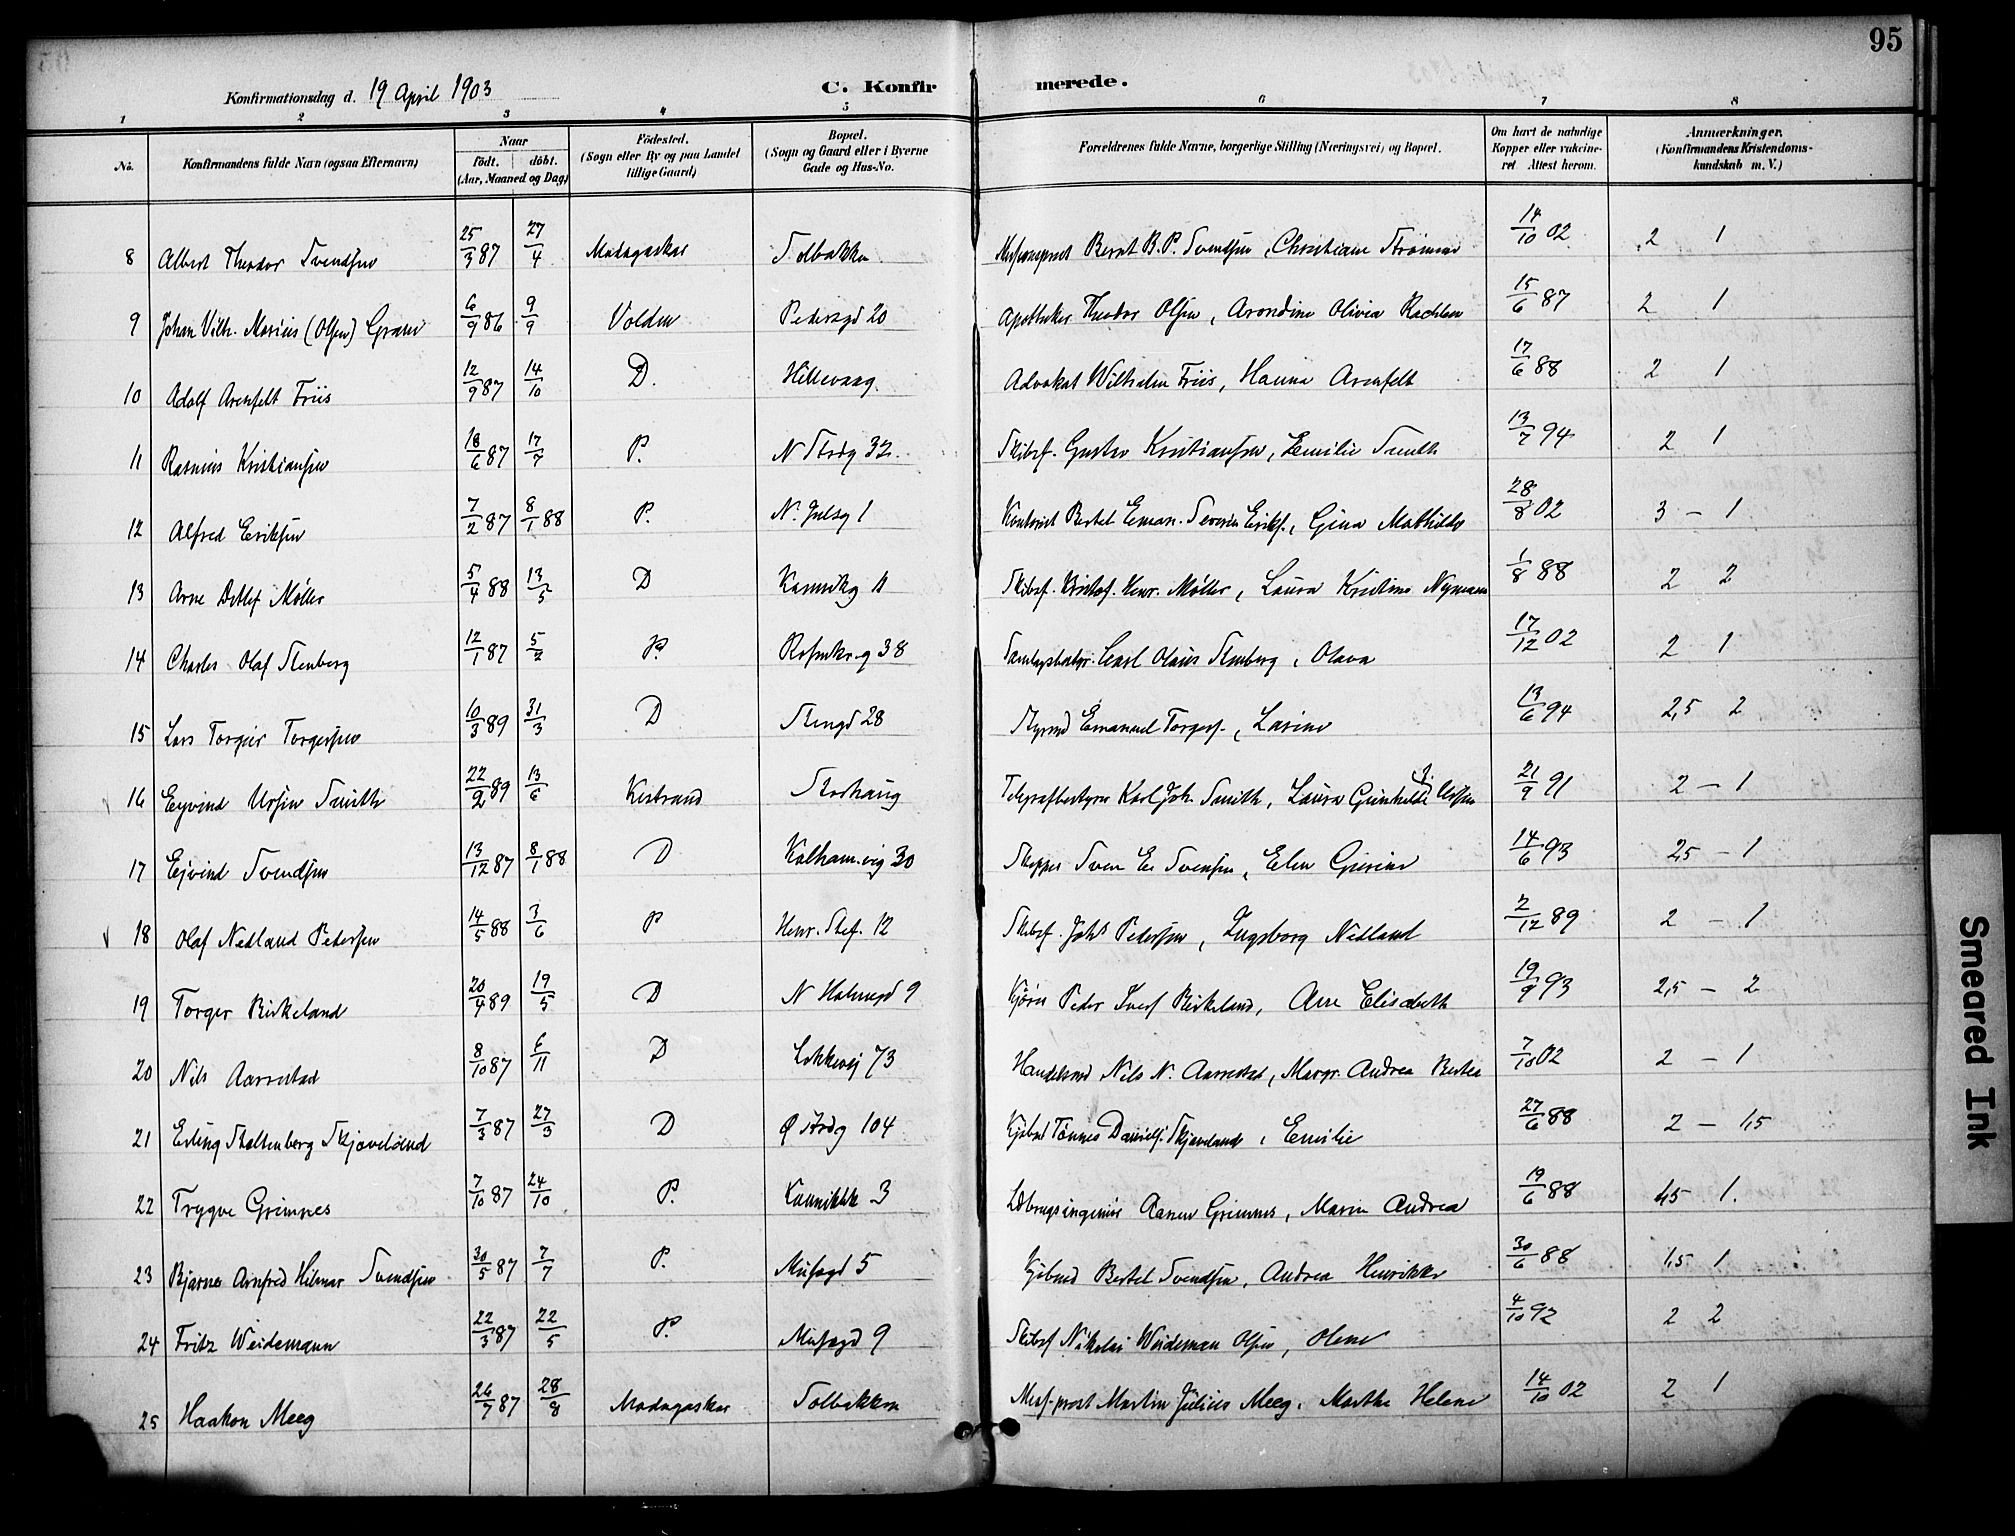 95
Konfirmationsdag d. 19 April 1903
C. Konfirmerede.
1 2 3 4 5 6 7 8
No. Konfirmandens fulde Navn (ogsaa Efternavn) Naar født. døbt. (Aar, Maaned og Dag) Fødested. (Sogn eller By og paa Landet tillige Gaard) Bopæl. (Sogn og Gaard eller i Byerne Gade og Hus-No. Forældrenes fulde Navne, borgerlige Stilling (Næringsvei) og Bopæl. Om havt de naturlige Kopper eller vakcineret Attest herom. Anmærkninger. (Konfirmandens Kristendomskundskab m. V.)
8 Albert Theodor Svendsen 25/3 87 27/4 Madagaskar Solbakken Bernt B. P. Svendsen, Christiane Strømme 14/10 02 2 1
9 Johan Vilh. Marius (Olsen) Gram 6/9 86 9/9 Volden Pedersgd 20 Apotheker Theodor Olsen, Arondine Olivia 15/6 87 2 1
10 Adolf Arenfelt Friis 12/9 87 14/10 D. Hillevaag Advokat Wilhelm Friis, Hanna Arenfelt 17/6 88 2 1
11 Rasmus Kristiansen 18/6 87 17/7 P. N Strdg 32 Skibsf. Gustav Kristiansen, Emilie Smith 13/7 94 2 1
12 Alfred Eriksen 7/2 87 8/1 88 P. 1 Kontorist Bertel Eman. Severin Eriks., Gina Mathilde 28/8 02 3 – 1
13 Arne Detlef Møller 5/4 88 13/5 D Kannikg 11 Skibsf. Kristof. Henr. Møller, Laura Kristine Nymann 1/8 88 2 2
14 Charles Olaf Stenberg 12/1 87 5/2 P. Rosenkr. g 38 Carl Olaus Stenberg, Olava 17/12 02 2 1
15 Lars Torgeir Torgersen 10/3 89 31/3 D Stengd 28 Styrmd Emanuel Torgers., Lavine 13/6 94 2,5 2
16 Eyvind Ursin Smith 22/2 89 13/6 Kistrand Storhaug Telegrafbestyrer Karl Joh. Smith, Laura Gunhilda J. Ursin 21/9 91 2 – 1
17 Ejvind Svendsen 13/12 87 8/1 88 D Kalham.vig 30 Skipper Sven Er Svensen, Elen Gurine 14/6 93 2,5 – 1
18 Olaf Nedland Petersen 14/5 88 3/6 P Henr. Stef. 12 Skibsf. Johs Petersen, Ingeborg Nedland 2/12 89 2 – 1
19 Torger Birkeland 20/4 89 19/5 D N Holmegd 9 Kjører Peder Ivers Birkeland, Ane Elisabeth 19/9 93 2,5 – 2
20 Nils Aarrestad 8/10 87 6/11 D Løkkevej 73 Handelsmd Nils N. Aarrestad, Margr. Andrea Bertea 7/10 02 2 – 1
21 Erling Stoltenberg Skjæveland 7/3 87 27/3 D Ø Strdg 104 Kjøbmd Tønnes Daniels. Skjæveland, Emilie 27/6 88 2 – 1,5
22 Trygve Grimnes 7/10 87 24/10 P. Kannikbk 3 Ldbrugsingeniør Aanen Grimnes, Maren Andrea 19/6 88 1,5 1.
23 Bjarne Arnfred Hilmar Svendsen 30/5 87 7/7 P. Musægd 5 Kjøbmd Bertel Svendsen, Andrea Henrikke 30/6 88 1,5 1
24 Fritz Weidemann 22/3 87 22/5 P. Musægd 9 Skibsf Nikolai Weideman Olsen, Olene 4/10 92 2 2
25 Haakon Meeg 26/7 87 28/8 Madagaskar Solbakken Miss.prest Martin Julius Meeg, Marthe Helene 14/10 02 2 1
Smeared Ink